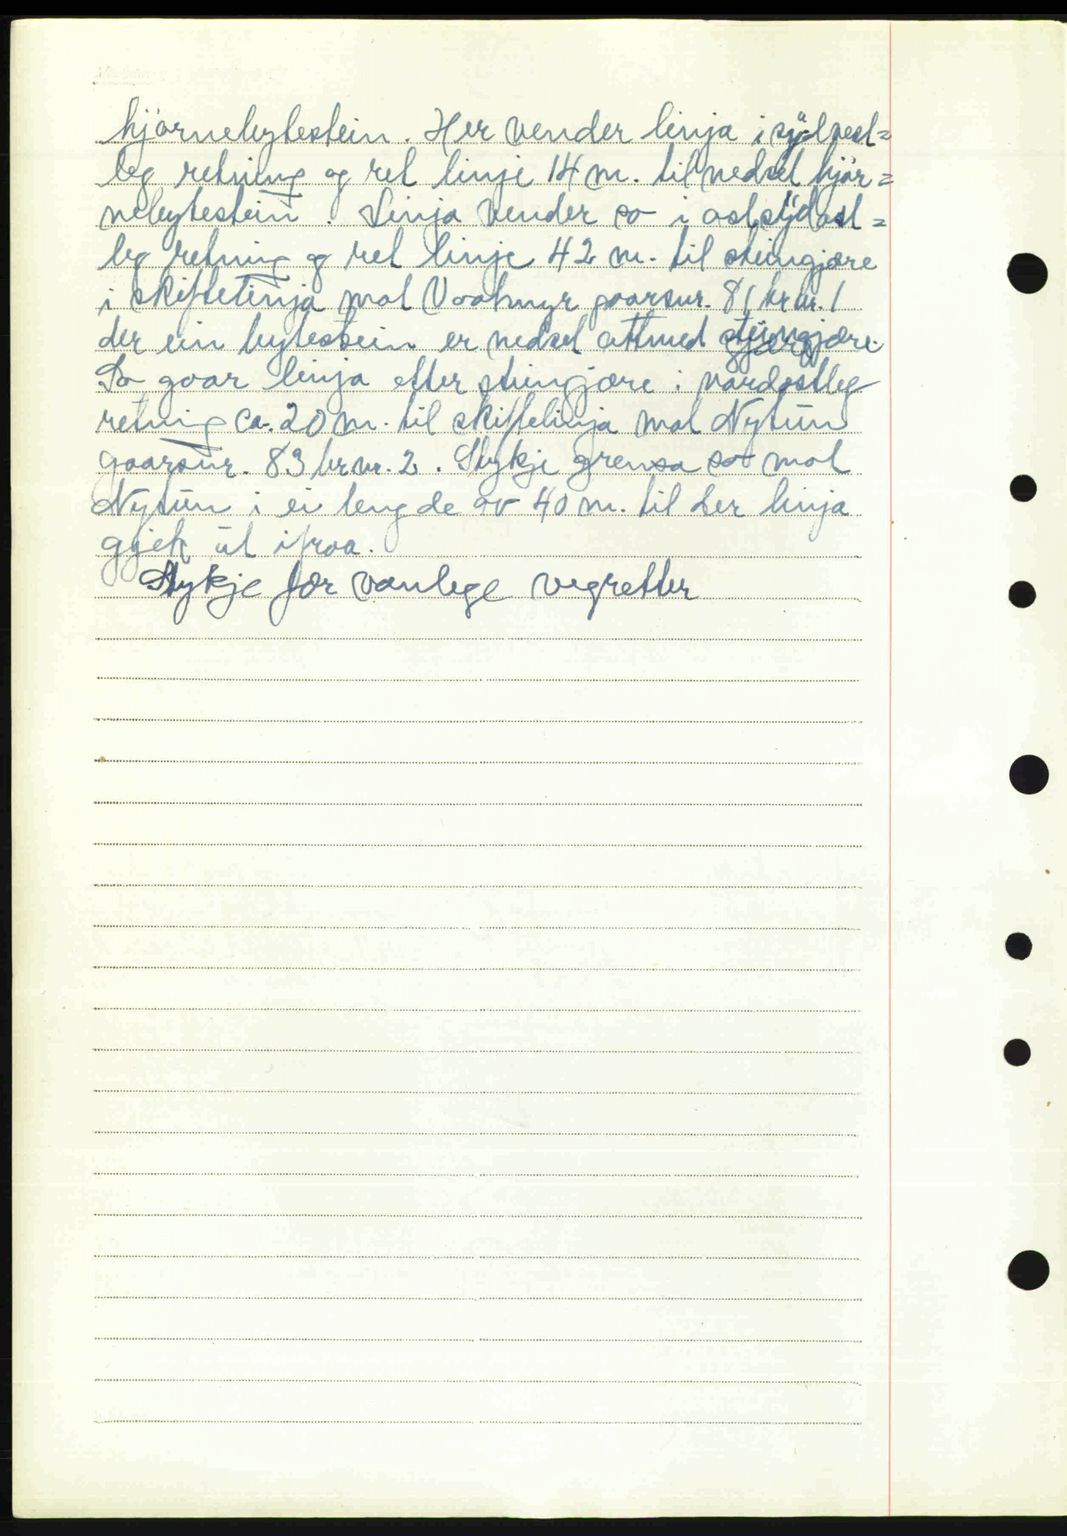 hjørnebytestein. Her vender linja i sydvest=
leg retning og ret linje 14 m. til nedset hjør=
nebytestein. Linja vender so i ostsydost=
leg retning og ret linje 42 m. til steingjære
i skiftelinja mot Vaatmyr gaarsnr. 81 br.nr. 1
der ein bytestein er nedset attmed steingjære.
So gaar linja etter steingjære i nordostleg
retning ca. 20 m. til skiftelinja mot Nytun
gaarsnr. 83 br.nr. 2. Stykje grensa so mot
Nytun i ei lengde av 40 m. til der linja
gjek ut ifraa.
Stykje før vanlege vegretter